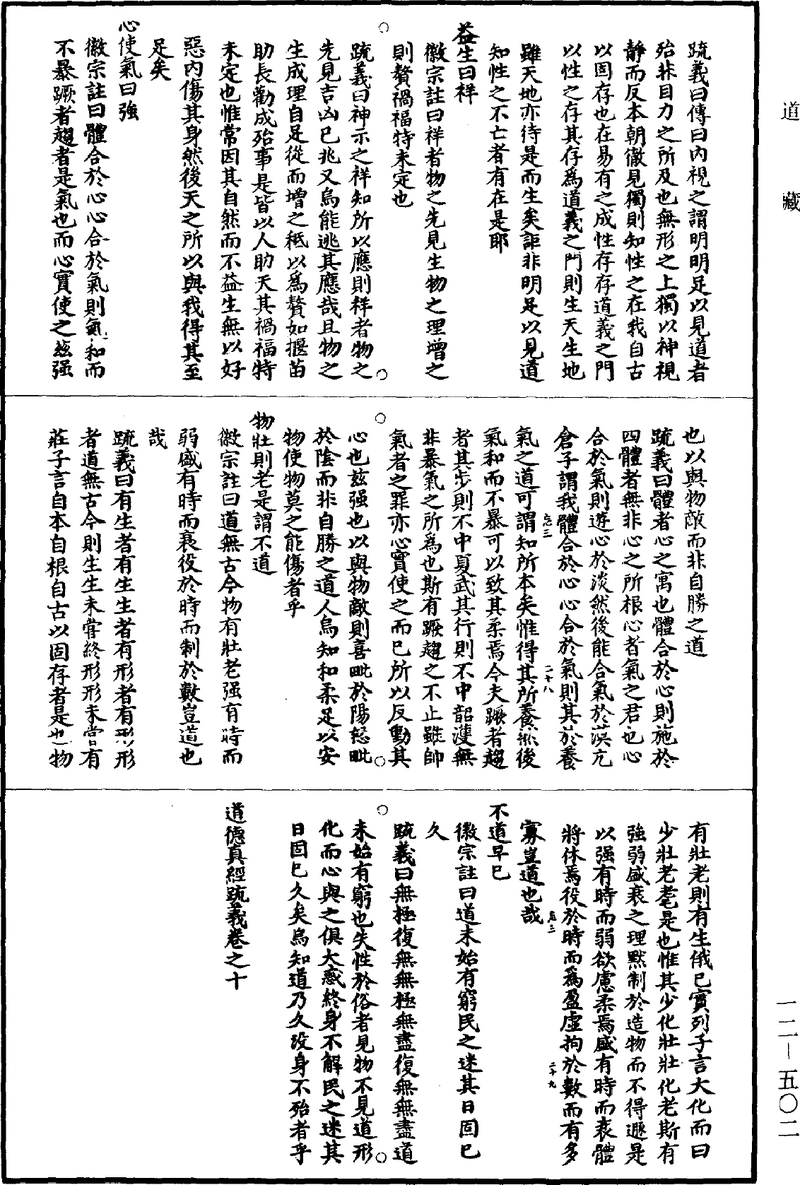 道藏
疏義曰傳曰內視之謂明明足以見道者
殆非目力之所及也無形之上獨以神視
靜而反本朝徹見獨則知性之在我自古
以固存也在易有之成性存存道義之門
以性之存其存為道義之門則生天生地
雖天地亦待是而生矣詎非明足以見道
知性之不亡者有在是耶
益生曰祥
徽宗註曰祥者物之先見生物之理增之
則贅禍福特未定也
疏義曰神示之祥知所以應則祥者物之
先見吉凶已兆又烏能逃其應哉且物之
生成理自足從而增之秪以為贅如揠苗
助長勸成殆事是皆以人助天其禍福特
未定也惟常因其自然而不益生無以好
惡內傷其身然後天之所以與我得其至
足矣
心使氣曰強
徽宗註曰體合於心心合於氣則氣和而
不暴蹶者趨者是氣也而心實使之茲强
也以與物敵而非自勝之道
疏義曰體者心之寓也體合於心則施於
四體者無非心之所根心者氣之君也心
合於氣則遊心於淡然後能合氣於漠亢
倉子謂我體合於心心合於氣則其於養
氣之道可謂知所本矣惟得其所養然後
氣和而不暴可以致其柔焉今夫蹶者趨
者其步則不中夏武其行則不中韶濩無
非暴氣之所為也斯有蹶趨之不止雖帥
氣者之罪亦心實使之而已所以反動其
心也茲强也以與物敵則喜毗於陽怒毗
於陰而非自勝之道人烏知和柔足以安
物使物莫之能傷者乎
物壯則老是謂不道
徽宗註曰道無古今物有壯老强有時而
弱盛有時而衰役於時而制於數豈道也
哉
疏義曰有生者有生生者有形者有形形
者道無古今則生生未嘗終形形未嘗有
莊子言自本自根自古以固存者是也物
有壯老則有生俄已實列子言大化而曰
少壯老耄是也惟其少化壯壯化老斯有
強弱盛衰之理默制於造物而不得遯是
以强有時而弱欲慮柔焉盛有時而衰體
將休焉役於時而為盈虛拘於數而有多
寡豈道也哉
不道早已
徽宗註曰道未始有窮民之迷其日固已
久
疏義曰無極復無無極無盡復無無盡道
未始有窮也失性於俗者見物不見道形
化而心與之俱大惑終身不解民之迷其
日固已久矣烏知道乃久沒身不殆者乎
道德真經疏義卷之十
二十八
二十九
一二—五〇二